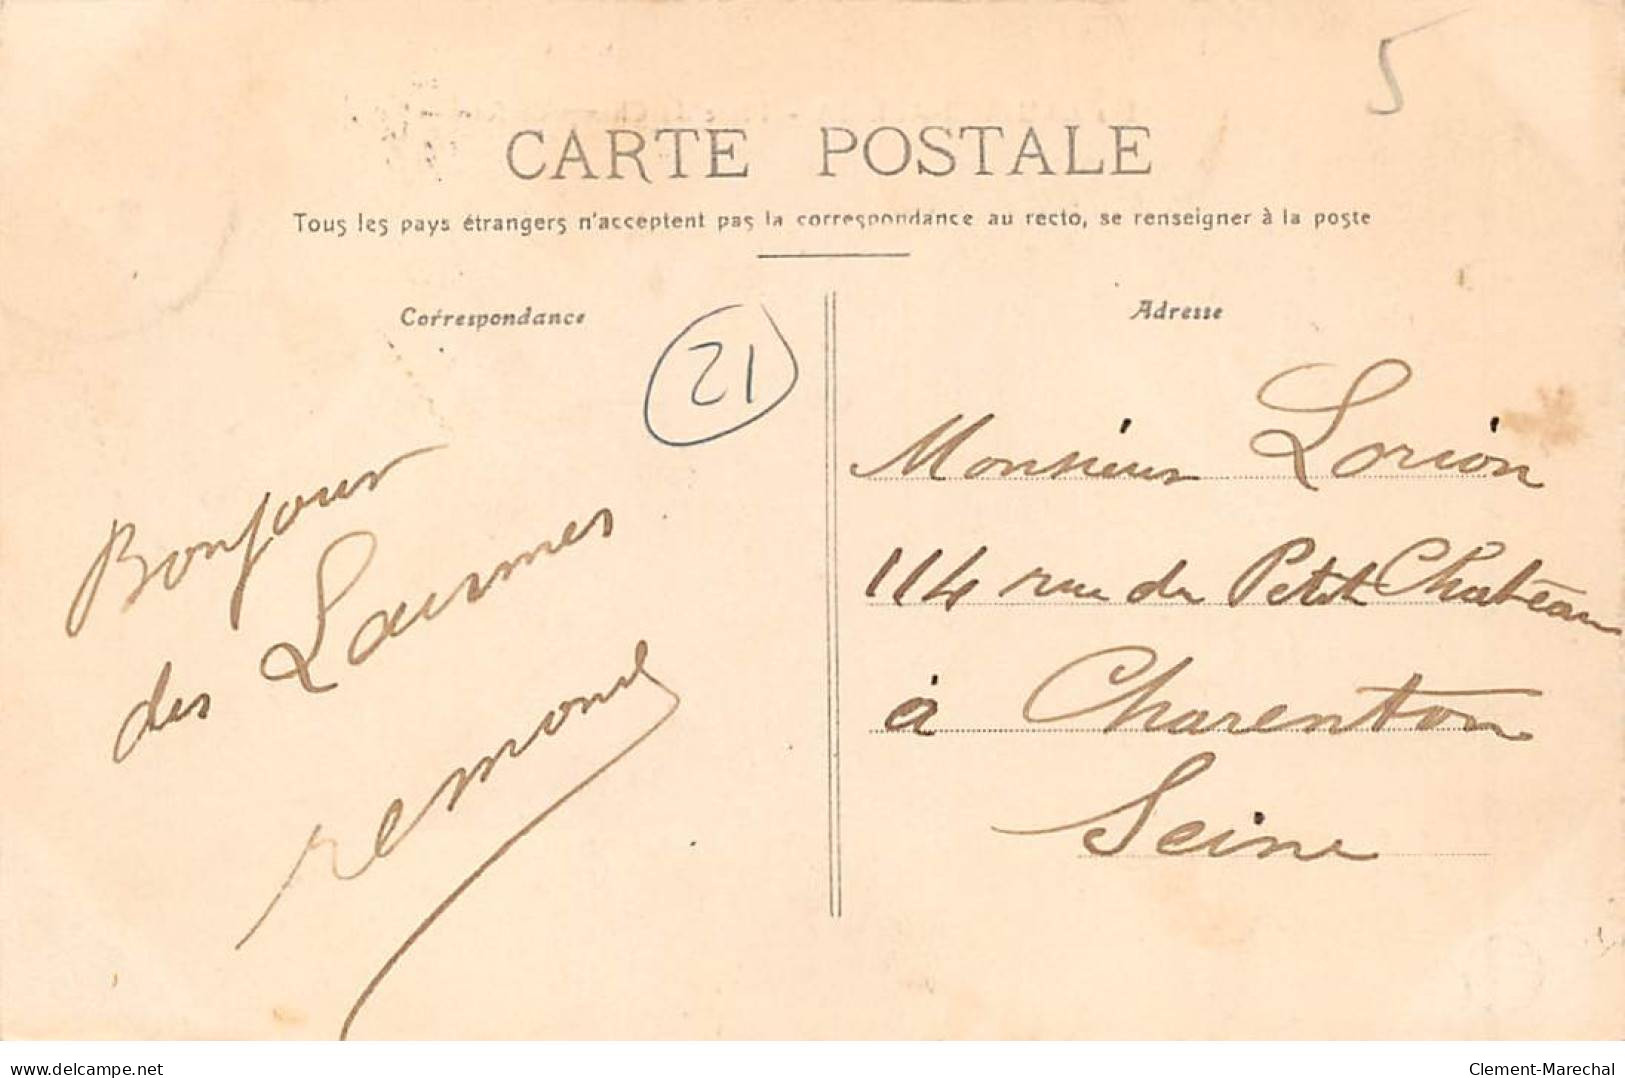 5
CARTE POSTALE
Tous les pays étrangers n'acceptent pas la correspondance au recto, se renseigner à la poste
Correspondance
21
Bonjour
des Laumes
remond
Adresse
Monsieur Lorion
114 rue du Petit Château
à Charenton
Seine
www.delcampe.net
Clement-Marechal